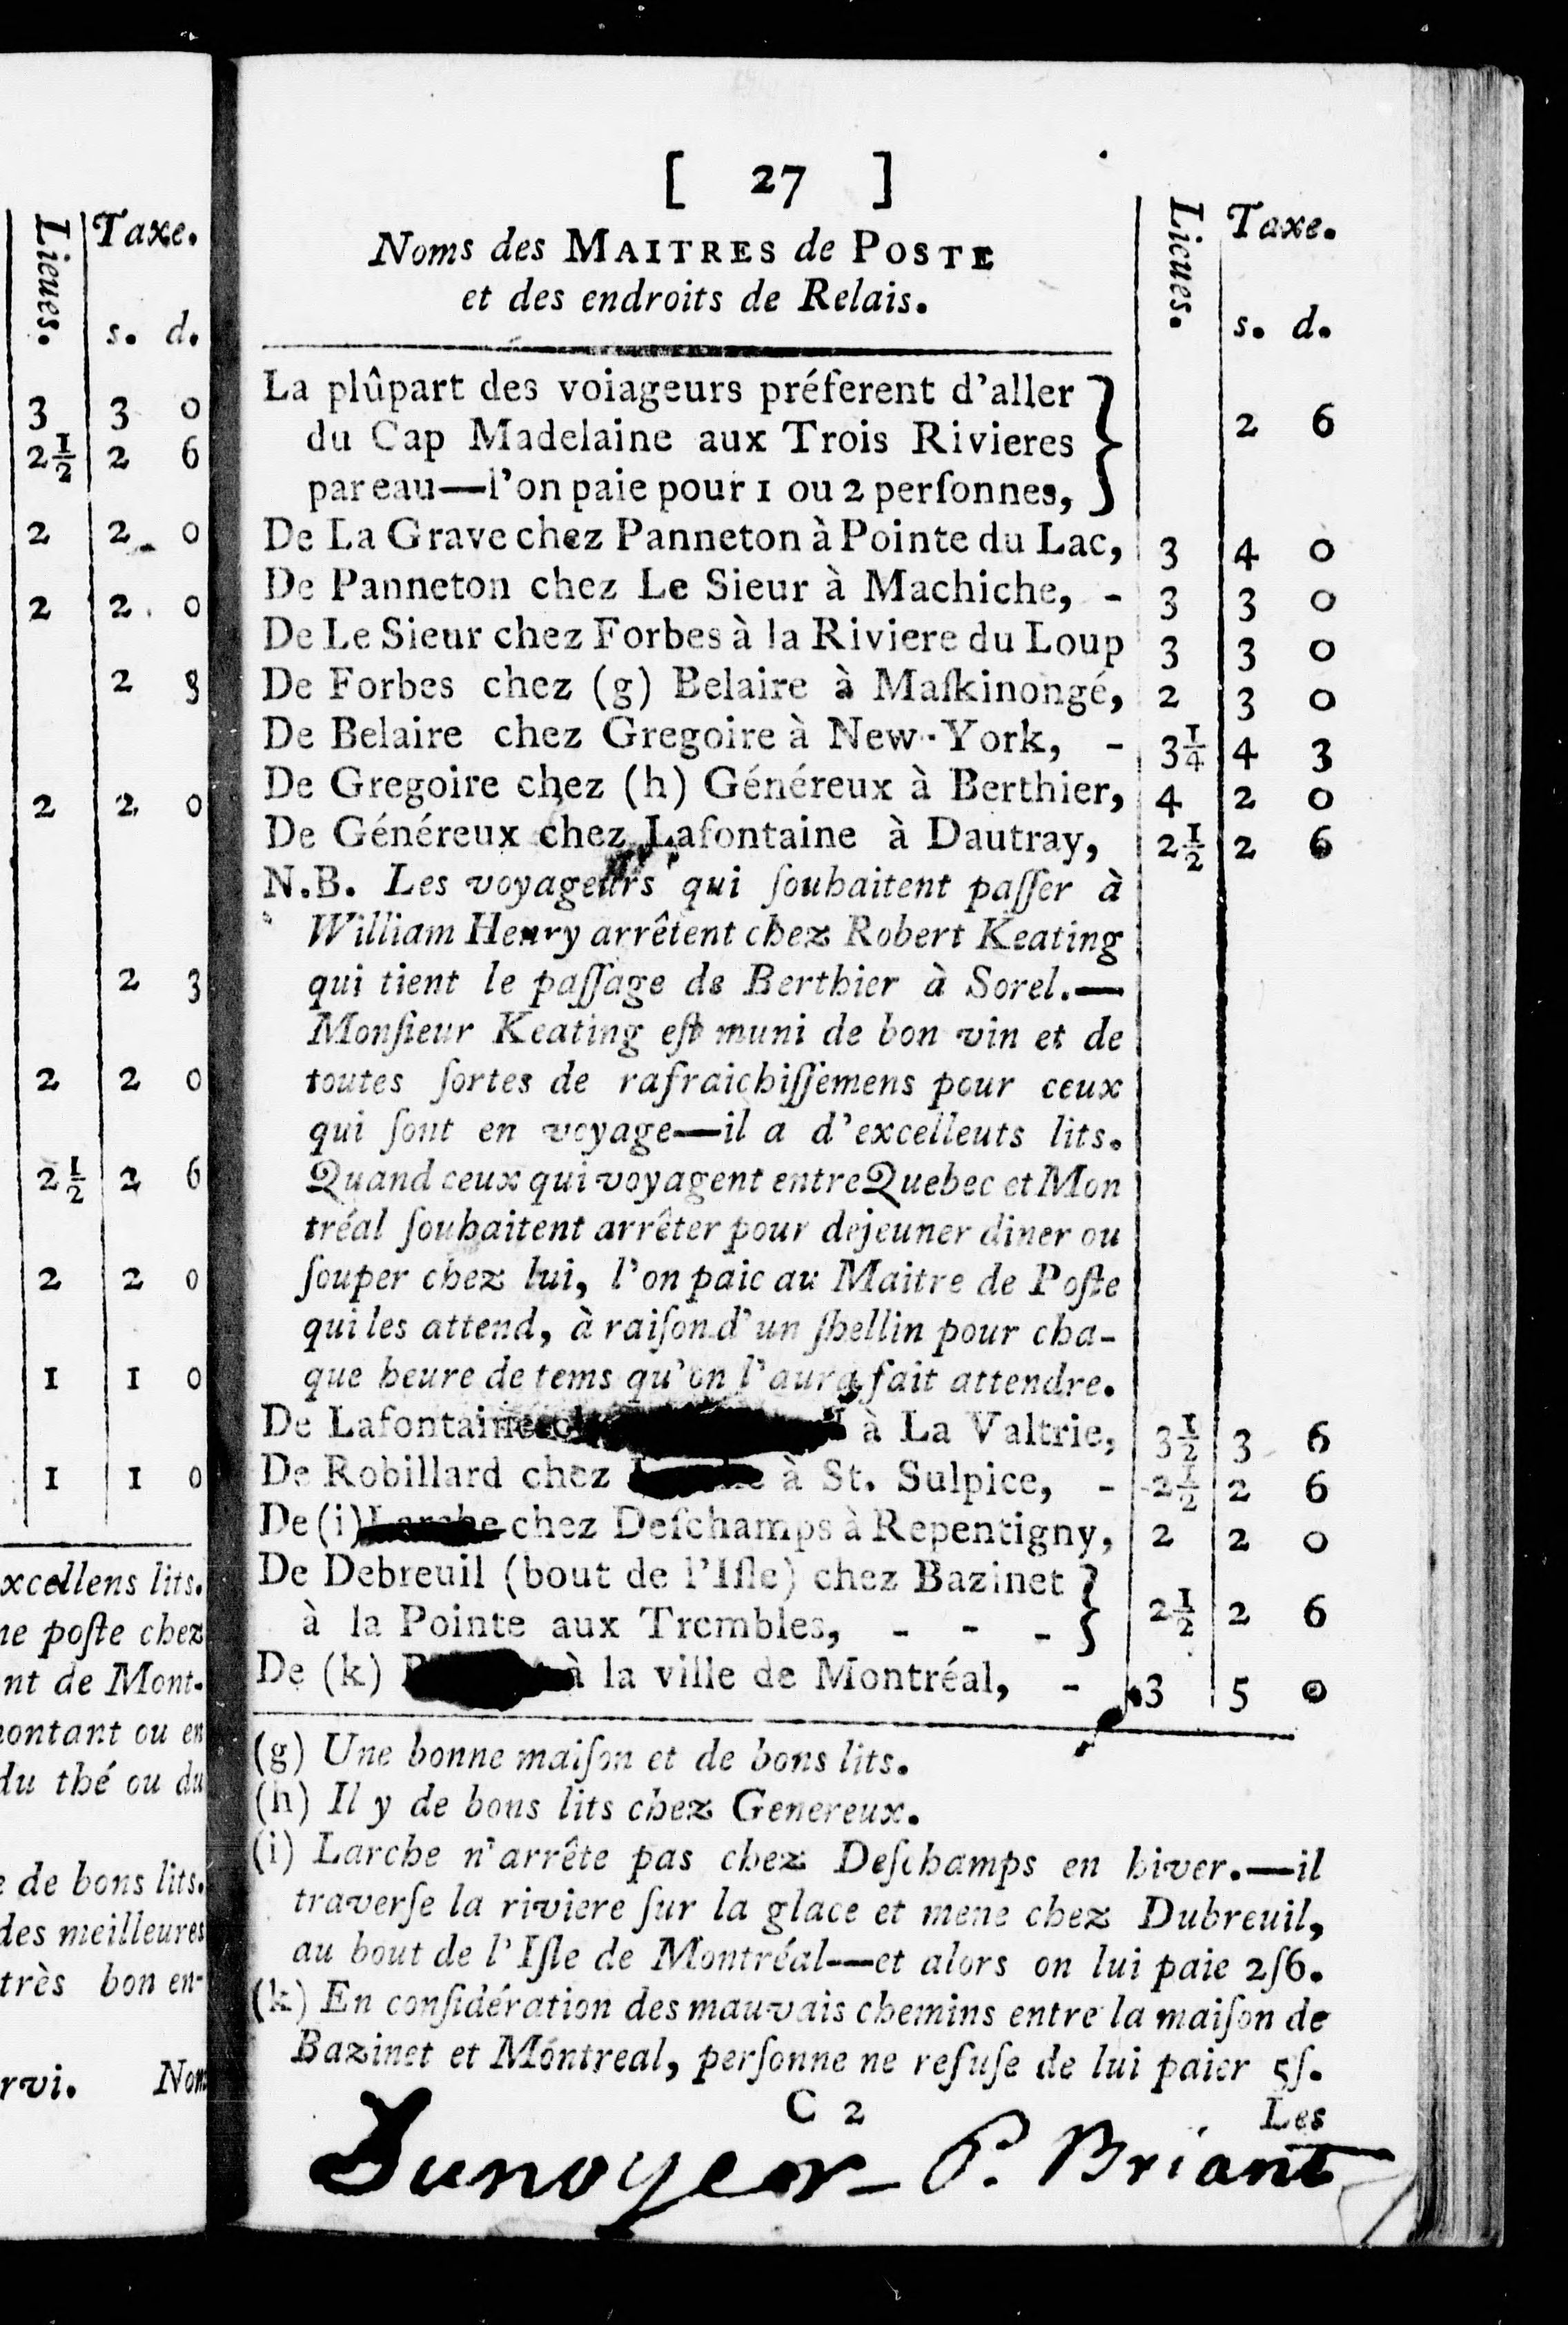 Lieues. Taxe.
s. d.
3 3 0
2½ 2 6
2 2 0
2 2 0
2 3
2 2 0
2 3
2 2 0
2½ 2 6
2 2 0
1 1 0
1 1 0
xcellens lits.
ne poſte chez
nt de Mont-
montant ou en
du thé ou du
e de bons lits.
des meilleures
très bon en-
rvi. Nom
[ 27 ]
Noms des MAITRES de POSTE
et des endroits de Relais.
Lieues. Taxe.
s. d.
La plûpart des voiageurs préferent d'aller
du Cap Madelaine aux Trois Rivieres 2 6
par eau—l'on paie pour 1 ou 2 perſonnes,
De La Grave chez Panneton à Pointe du Lac, 3 4 0
De Panneton chez Le Sieur à Machiche, - 3 3 0
De Le Sieur chez Forbes à la Riviere du Loup 3 3 0
De Forbes chez (g) Belaire à Maſkinongé, 2 3 0
De Belaire chez Gregoire à New-York, - 3¼ 4 3
De Gregoire chez (h) Généreux à Berthier, 4 2 0
De Généreux chez Lafontaine à Dautray, 2½ 2 6
N.B. Les voyageurs qui ſouhaitent paſſer à
William Henry arrêtent chez Robert Keating
qui tient le paſſage de Berthier à Sorel.—
Monſieur Keating eſt muni de bon vin et de
toutes ſortes de rafraichiſſemens pour ceux
qui ſont en voyage—il a d'excelleuts lits.
Quand ceux qui voyagent entre Quebec et Mon
tréal ſouhaitent arrêter pour dejeuner diner ou
ſouper chez lui, l'on paie au Maitre de Poſte
qui les attend, à raiſon d'un ſhellin pour cha-
que heure de tems qu'on l'aura fait attendre.
De Lafontaine à La Valtrie, 3½ 3 6
De Robillard chez à St. Sulpice, - 2½ 2 6
De (i) Larche chez Deſchamps à Repentigny, 2 2 0
De Debreuil (bout de l'Iſle) chez Bazinet
à la Pointe aux Trembles, - - - 2½ 2 6
De (k) à la ville de Montréal, - 3 5 0
(g) Une bonne maiſon et de bons lits.
(h) Il y de bons lits chez Genereux.
(i) Larche n'arrête pas chez Deſchamps en hiver.—il
traverſe la riviere ſur la glace et mene chez Dubreuil,
au bout de l'Iſle de Montréal—et alors on lui paie 2ſ6.
(k) En conſidération des mauvais chemins entre la maiſon de
Bazinet et Montreal, perſonne ne refuſe de lui paier 5ſ.
C 2 Les
P. Briant